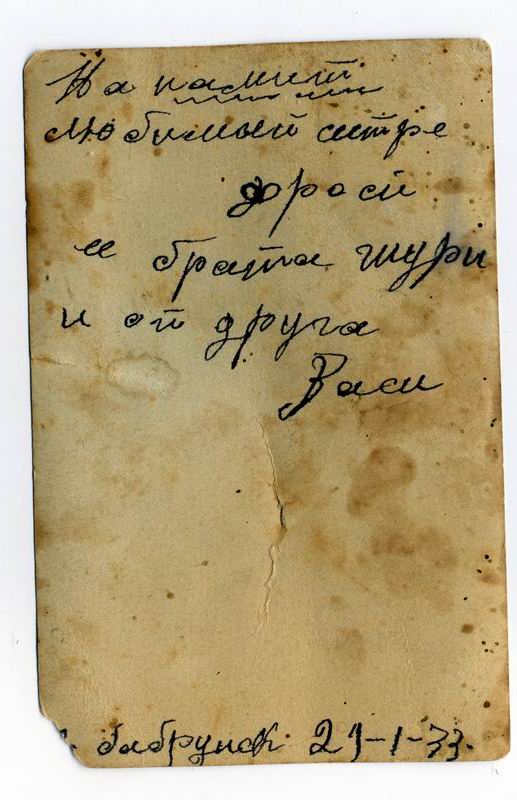 На памит
любимый систре
дороси
и брата шури
и от друга
Васи
бабруиск 29-1-33.